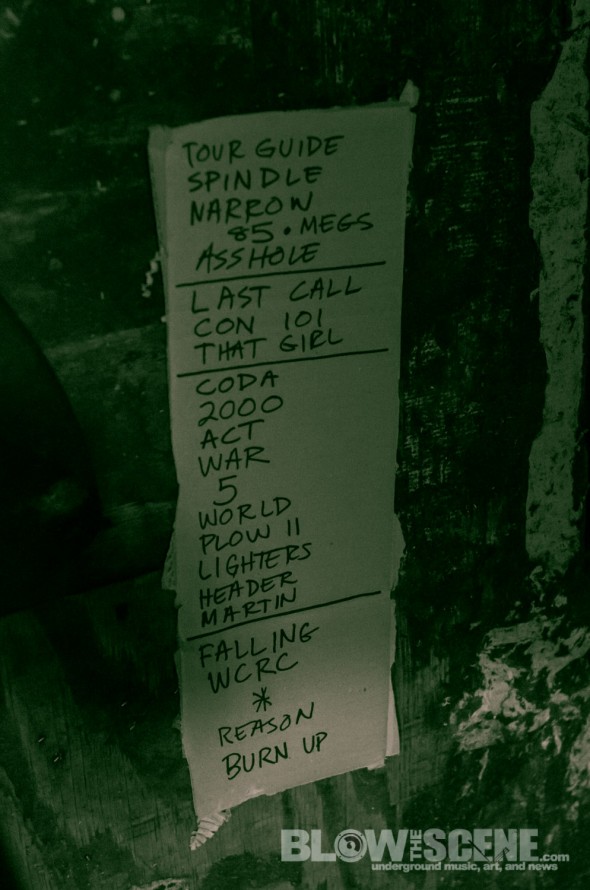 TOUR GUIDE
SPINDLE
NARROW
85 • MEGS
ASSHOLE
LAST CALL
CON 101
THAT GIRL
CODA
2000
ACT
WAR
5
WORLD
PLOW II
LIGHTERS
HEADER
MARTIN
FALLING
WCRC
*
REASON
BURN UP
BLOW THE SCENE.com
underground music, art, and news